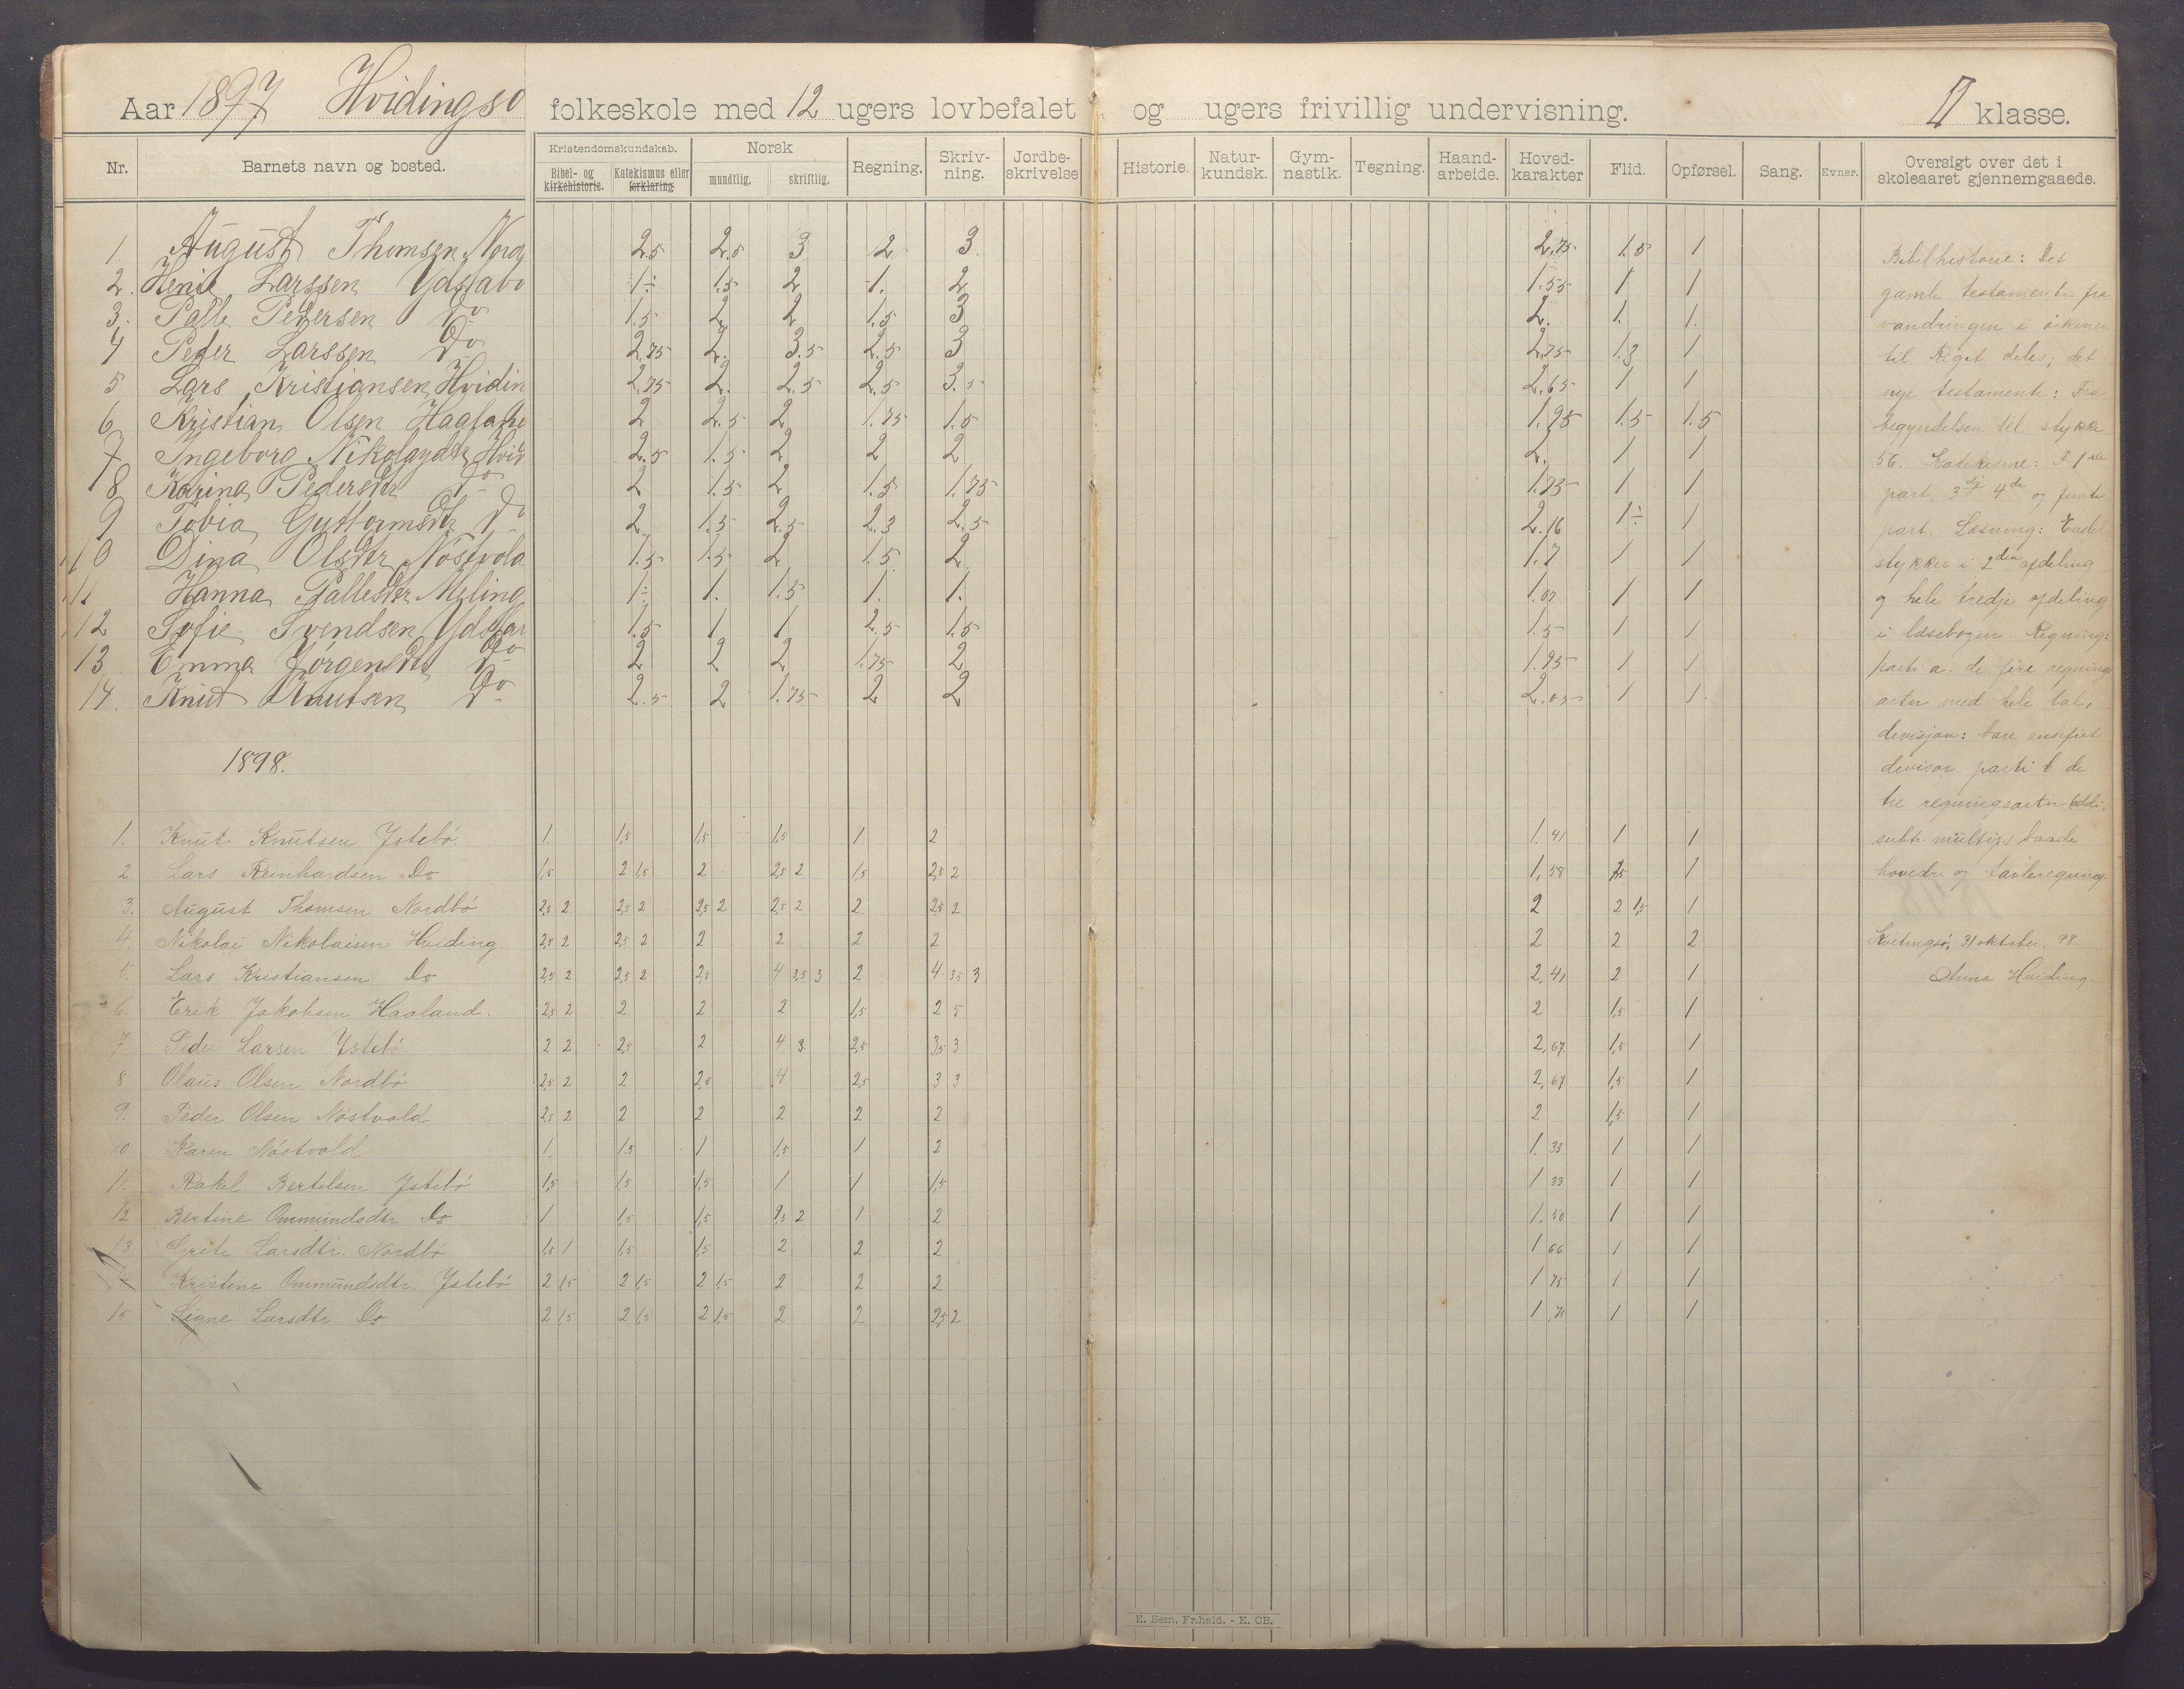 Aar 1897 Hvidingsö folkeskole med 12 ugers lovbefalet og ugers frivillig undervisning. II klasse.
Nr. Barnets navn og bosted. Kristendomskundskab. Bibel- og kirkehistorie. Katekismus eller forklaring. Norsk mundtlig. skriftlig. Regning. Skriv-ning. Jordbe-skrivelse Historie. Natur-kundsk. Gym-nastik. Tegning. Haand-arbeide. Hoved-karakter Flid. Opførsel. Sang. Evner. Oversigt over det i skoleaaret gjennemgaaede.
1. August Thomsen Nord 2.5 2.5 3 2 3 2.75 1.5 1
2. Henie Larssen Ydstabö 1÷ 1.5 2 1. 2 1.55 1 1
3. Palle Pedersen Do 1.5 2 2 1.5 3 2. 1. 1.
4 Peder Larssen Do 2.75 2. 3.5 2.5 3 2.75 1.3 1
5 Lars Kristiansen Hvidin 2.75 2. 2.5 2.5 3.5 2.65 1 1
6 Kristian Olsen 2 2.5 2 1.75 1.5 1.95 1.5 1.5
7 Ingeborg Nikolaydtr Hvid 2.5 1.5 2 2 2 2. 1 1
8 Karina Pedersdtr Do 2 1.5 2 1.5 1.75 1.75 1 1
9 Tobia Guttormsdtr Do 2 1.5 2.5 2.3 2.5 2.16 1÷ 1
10 Dina Olsdtr Nöstvola 1.5 1.5 2 1.5 2 1.7 1 1
11 Hanna Pallesdtr Meling 1÷ 1. 1.5 1. 1. 1.07 1 1
12 Sofie Svendsen Ydstab 1.5 1 1 2.5 1.5 1.5 1 1
13 Emma Jörgensdtr Do 2 2 2 1.75 2 1.95 1 1
14. Knut Knutsen Do 2.5 2 1.75 2 2 2.05 1 1.
1898.
1. Knut Knutsen Ystebö. 1. 1,5 1,5 1,5 1 2 1.41 1 1
2 Lars Reinhardsen Do 1,5 2 1,5 2 2,5 2 1,5 2,5 2 1,58 1,5 1
3. August Thomsen Nordbö 2,5 2 2,5 2 2,5 2 2,5 2 2 2,5 2 2 2 1,5 1
4. Nikolai Nikolaisen Hviding. 2,5 2 2,5 2 2 2 2 2 2 2 2
5. Lars Kristiansen Do 2,5 2 2,5 2 2,5 4 3,5 3 2 4 3,5 3 2,41 2 1
6. Erik Jakobsen Haaland. 2,5 2 2 2 2 1,5 2 5 2 1,5 1
7 Peder Larsen Ystebö 2 2 2,5 2 4 3 2,5 3,5 3 2,67 1,5 1
8 Olaus Olsen Nordbö 2,5 2 2 2,5 4 2,5 3 3 2,67 1,5 1
9. Peder Olsen Nöstvold 2,5 2 2 2 2 2 2 2 1,5 1
10 Karen Nöstvold 1. 1.5 1 1,5 1 2 1.33 1 1
11. Rakel Bertelsen Ystebö 1,5 1,5 1,5 1 1 1,5 1 33 1 1
12 Bertine Ommundsdtr. Do 1 1,5 1,5 2,5 2 1 2 1,50 1 1
13 Grete Larsdtr. Nordbö 1,5 1 1,5 1,5 2 2 2 1 66 1 1
14 Kristine Ommundsdtr. Ystebö 2 1,5 2 1,5 2 1,5 2 2 2 1 75 1 1
15 Signe Larsdtr. Do 2 1,5 2 1,5 2 1,5 2 2 2,5 2 1,75 1 1
Bibelhistorie: Det
gamle testamente fra
vandringen i örkenen
til Riget deles; det
nye testamente: Fra
begyndelsen til stykke
56. Katekisme: 1ste
part. 3dje 4de og femte
part. Læsning: Endel
stykker i 2den afdeling
og hele tredje afdeling
i læsebogen. Regning:
parti a. de fire regnings
arter med hele tal,
devisjon: bare ensifret
devisor parti b de
tre regningsarter (addi,
subtr. multip.) baade
hovedr. og tavleregning.
Kvitingsö, 31 oktober 98.
Anna Hviding.
E. Sem, Fr.hald. - E. CB.